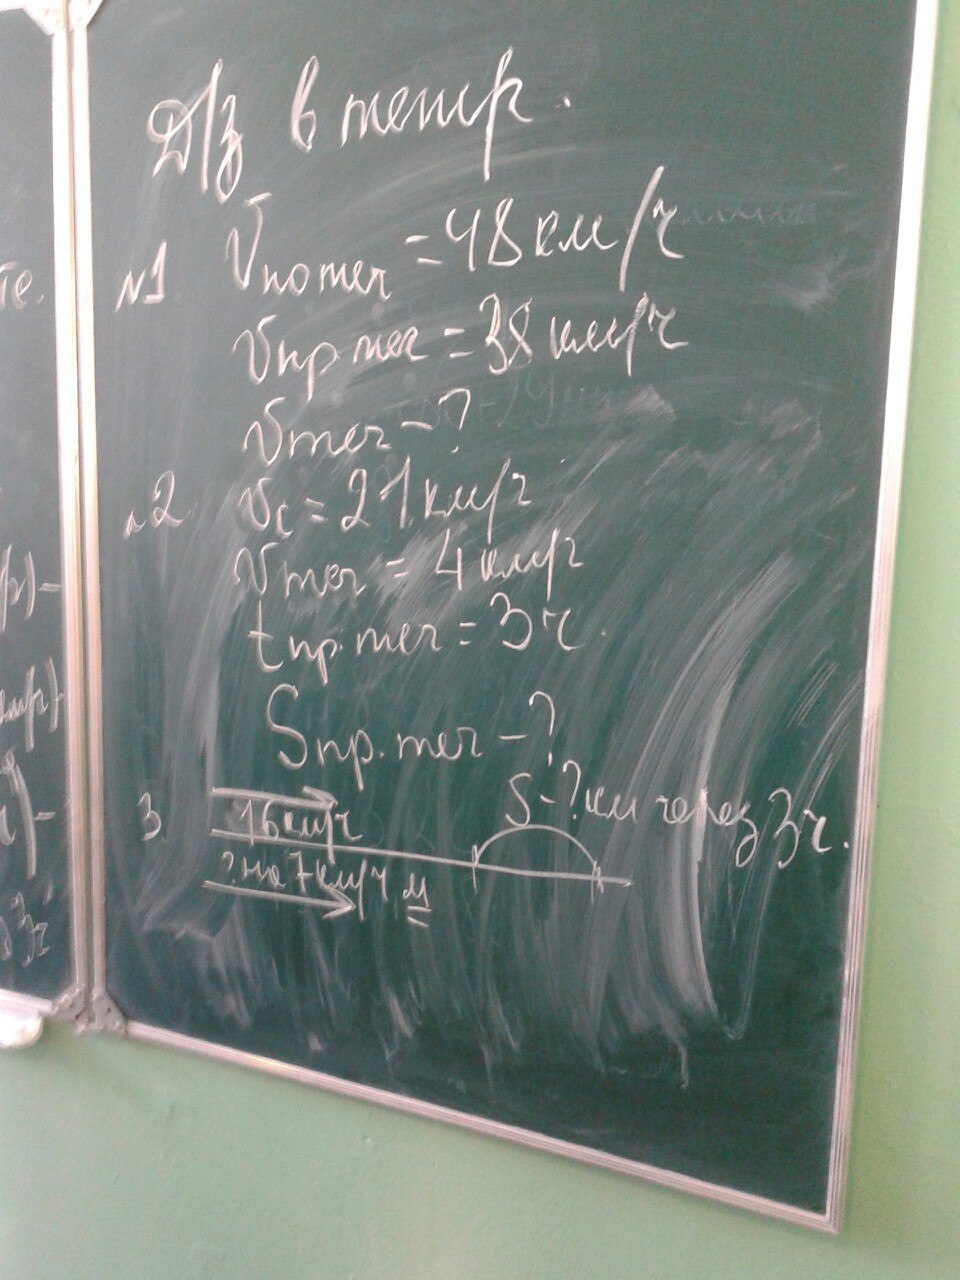 те.
Д/з в тетр.
№1 Vпо теч = 48 км/ч
Vпр теч = 38 км/ч
Vтеч - ?
№2 Vс = 21 км/ч
Vтеч = 4 км/ч
tпр. теч = 3 ч.
Sпр. теч - ?
3 16 км/ч S - ? км через 3 ч.
? на 7 км/ч м